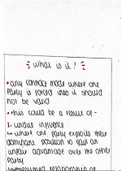 what is it?
• any contract made where one
party is forced into it should
not be valid
• this could be a result of -
1. undue influence
↳ where one party exploits their
dominant position to gain an
unfair advantage over the other
party